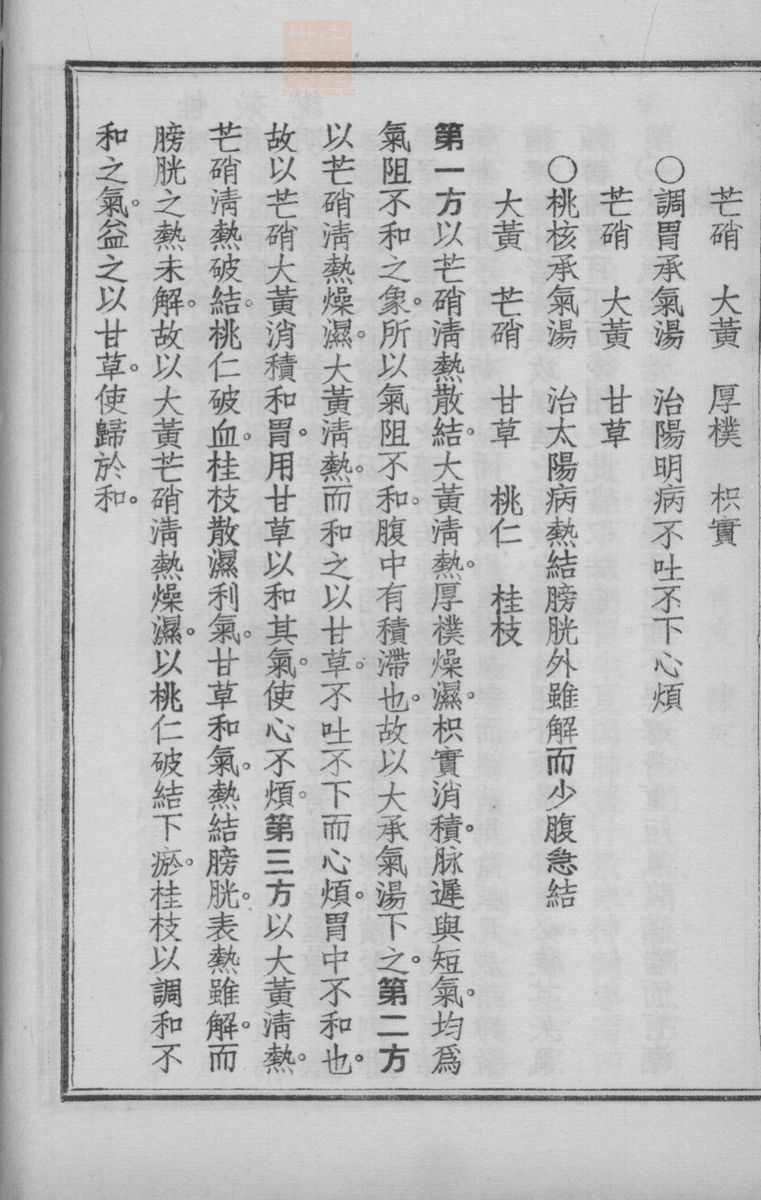 芒硝　大黃　厚樸　枳實
○調胃承氣湯　治陽明病不吐不下心煩
芒硝　大黃　甘草
○桃核承氣湯　治太陽病熱結膀胱外雖解而少腹急結
大黃　芒硝　甘草　桃仁　桂枝
第一方以芒硝淸熱散結。大黃淸熱。厚樸燥濕。枳實消積。脉遲與短氣。均爲
氣阻不和之象。所以氣阻不和。腹中有積滯也。故以大承氣湯下之。第二方
以芒硝淸熱燥濕。大黃淸熱。而和之以甘草。不吐不下而心煩。胃中不和也。
故以芒硝大黃消積和胃。用甘草以和其氣。使心不煩。第三方以大黃淸熱。
芒硝淸熱破結。桃仁破血。桂枝散濕利氣。甘草和氣。熱結膀胱。表熱雖解。而
膀胱之熱未解。故以大黃芒硝淸熱燥濕。以桃仁破結下瘀。桂枝以調和不
和之氣。益之以甘草。使歸於和。